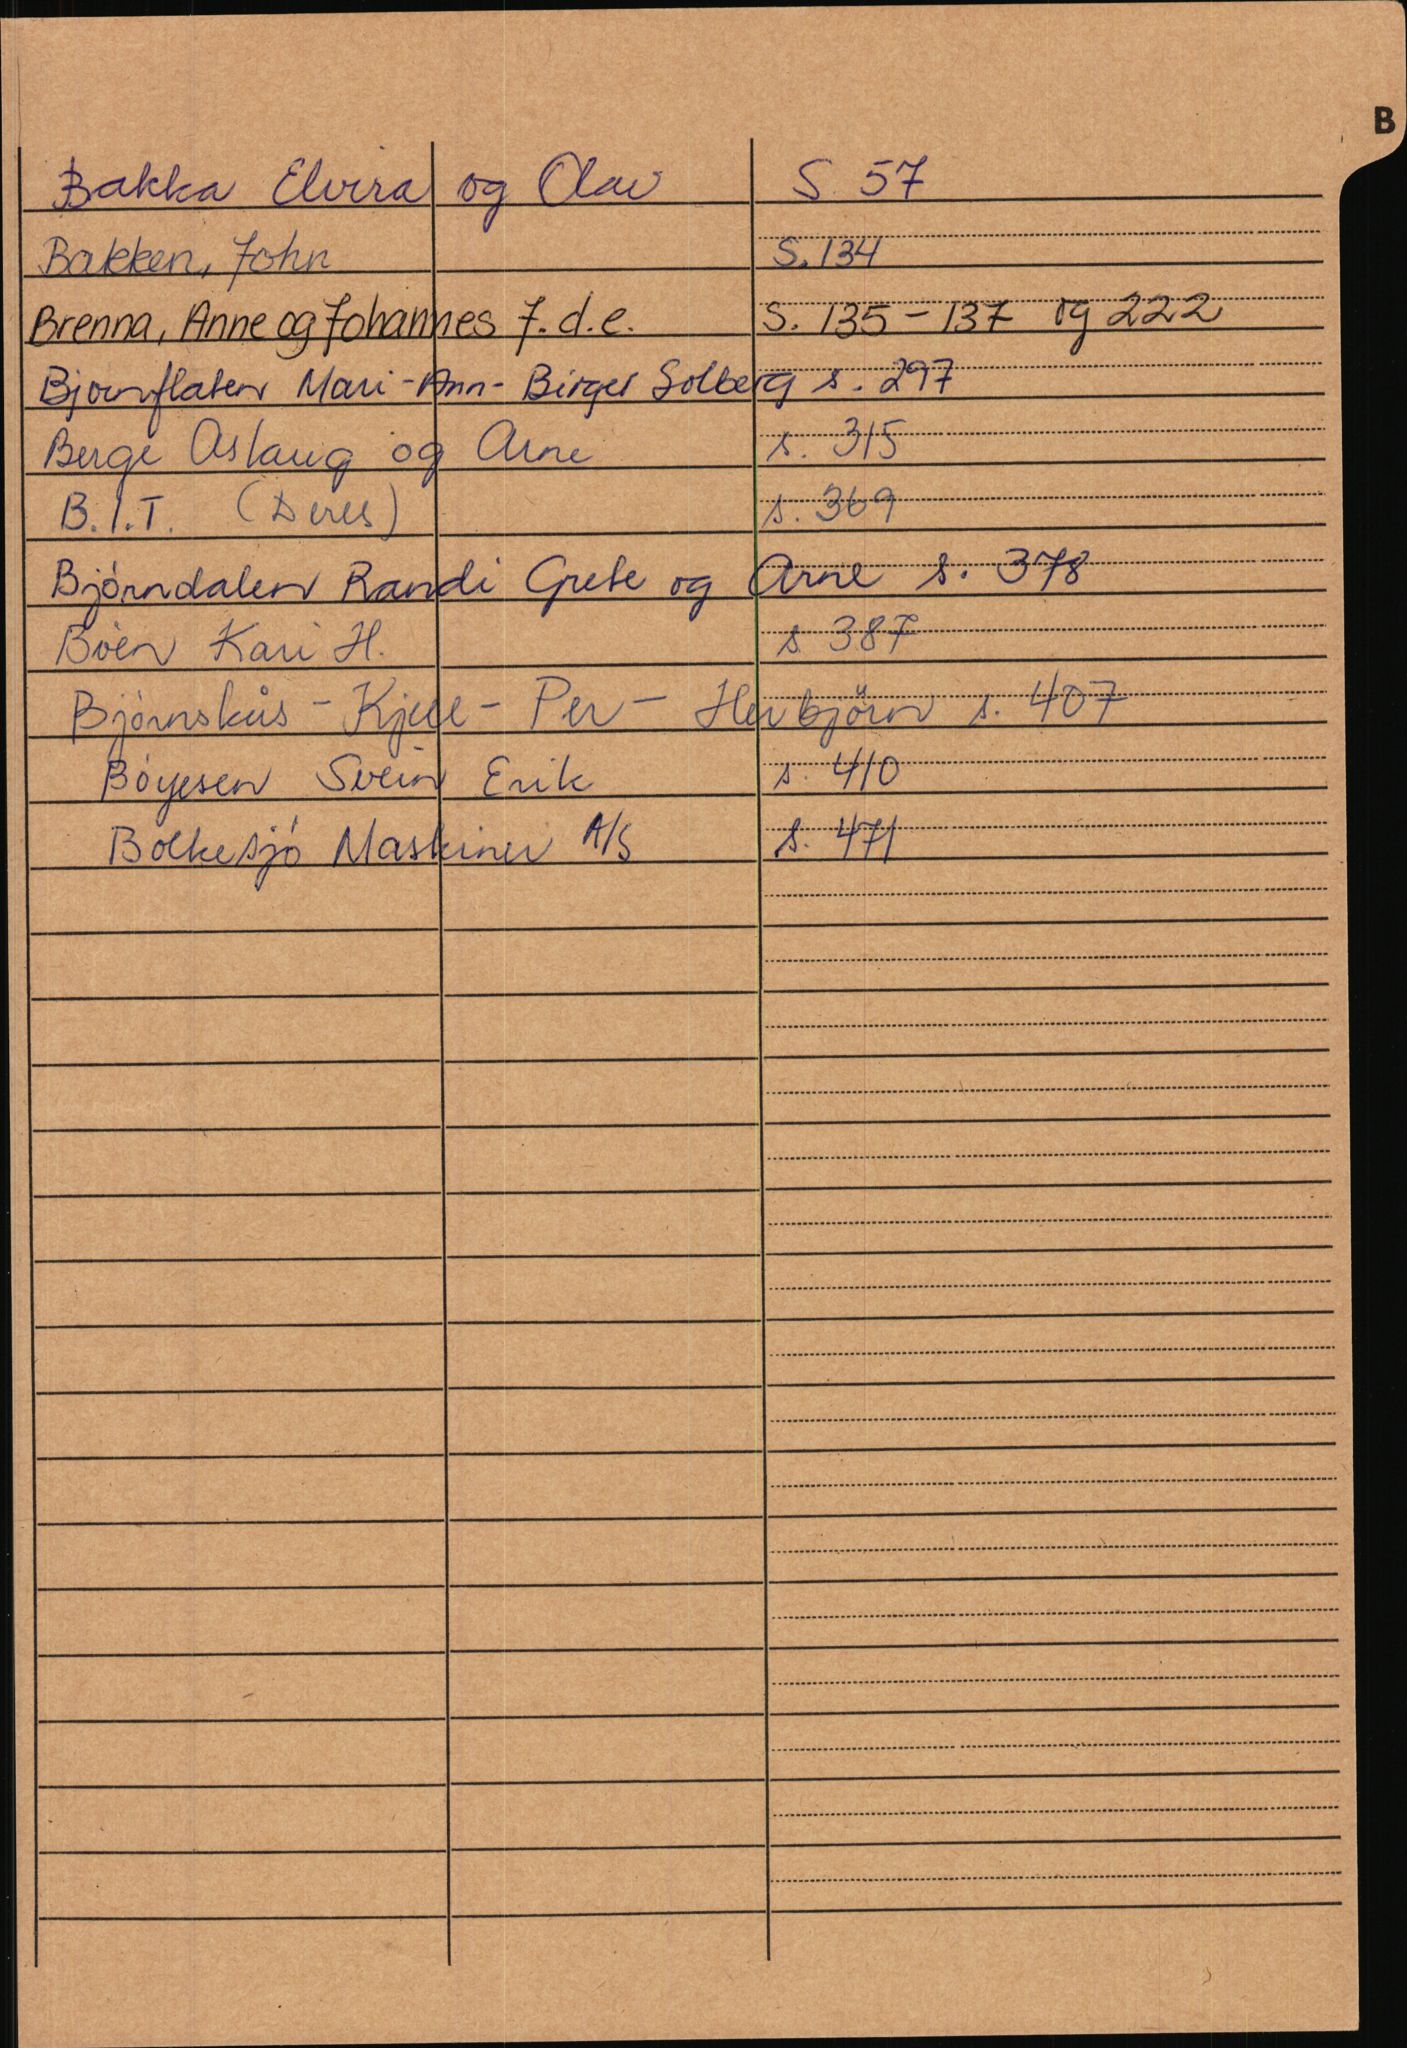 B
Bakka Elvira og Olav S. 57
Bakken, John S. 134
Brenna, Anne og Johannes f.d.e. S. 135-137 og 222
Bjornflaten Mari-Ann-Birger Solberg s. 297
Berge Aslaug og Arne s. 315
B.I.T. (Deres) s. 369
Bjørndalen Randi Grete og Arne s. 378
Bøen Kari H. s 387
Bjørnskås - Kjell - Per - Herbjörn s. 407
Bøyesen Svein Erik s. 410
Bolkesjø Maskiner A/S s. 471